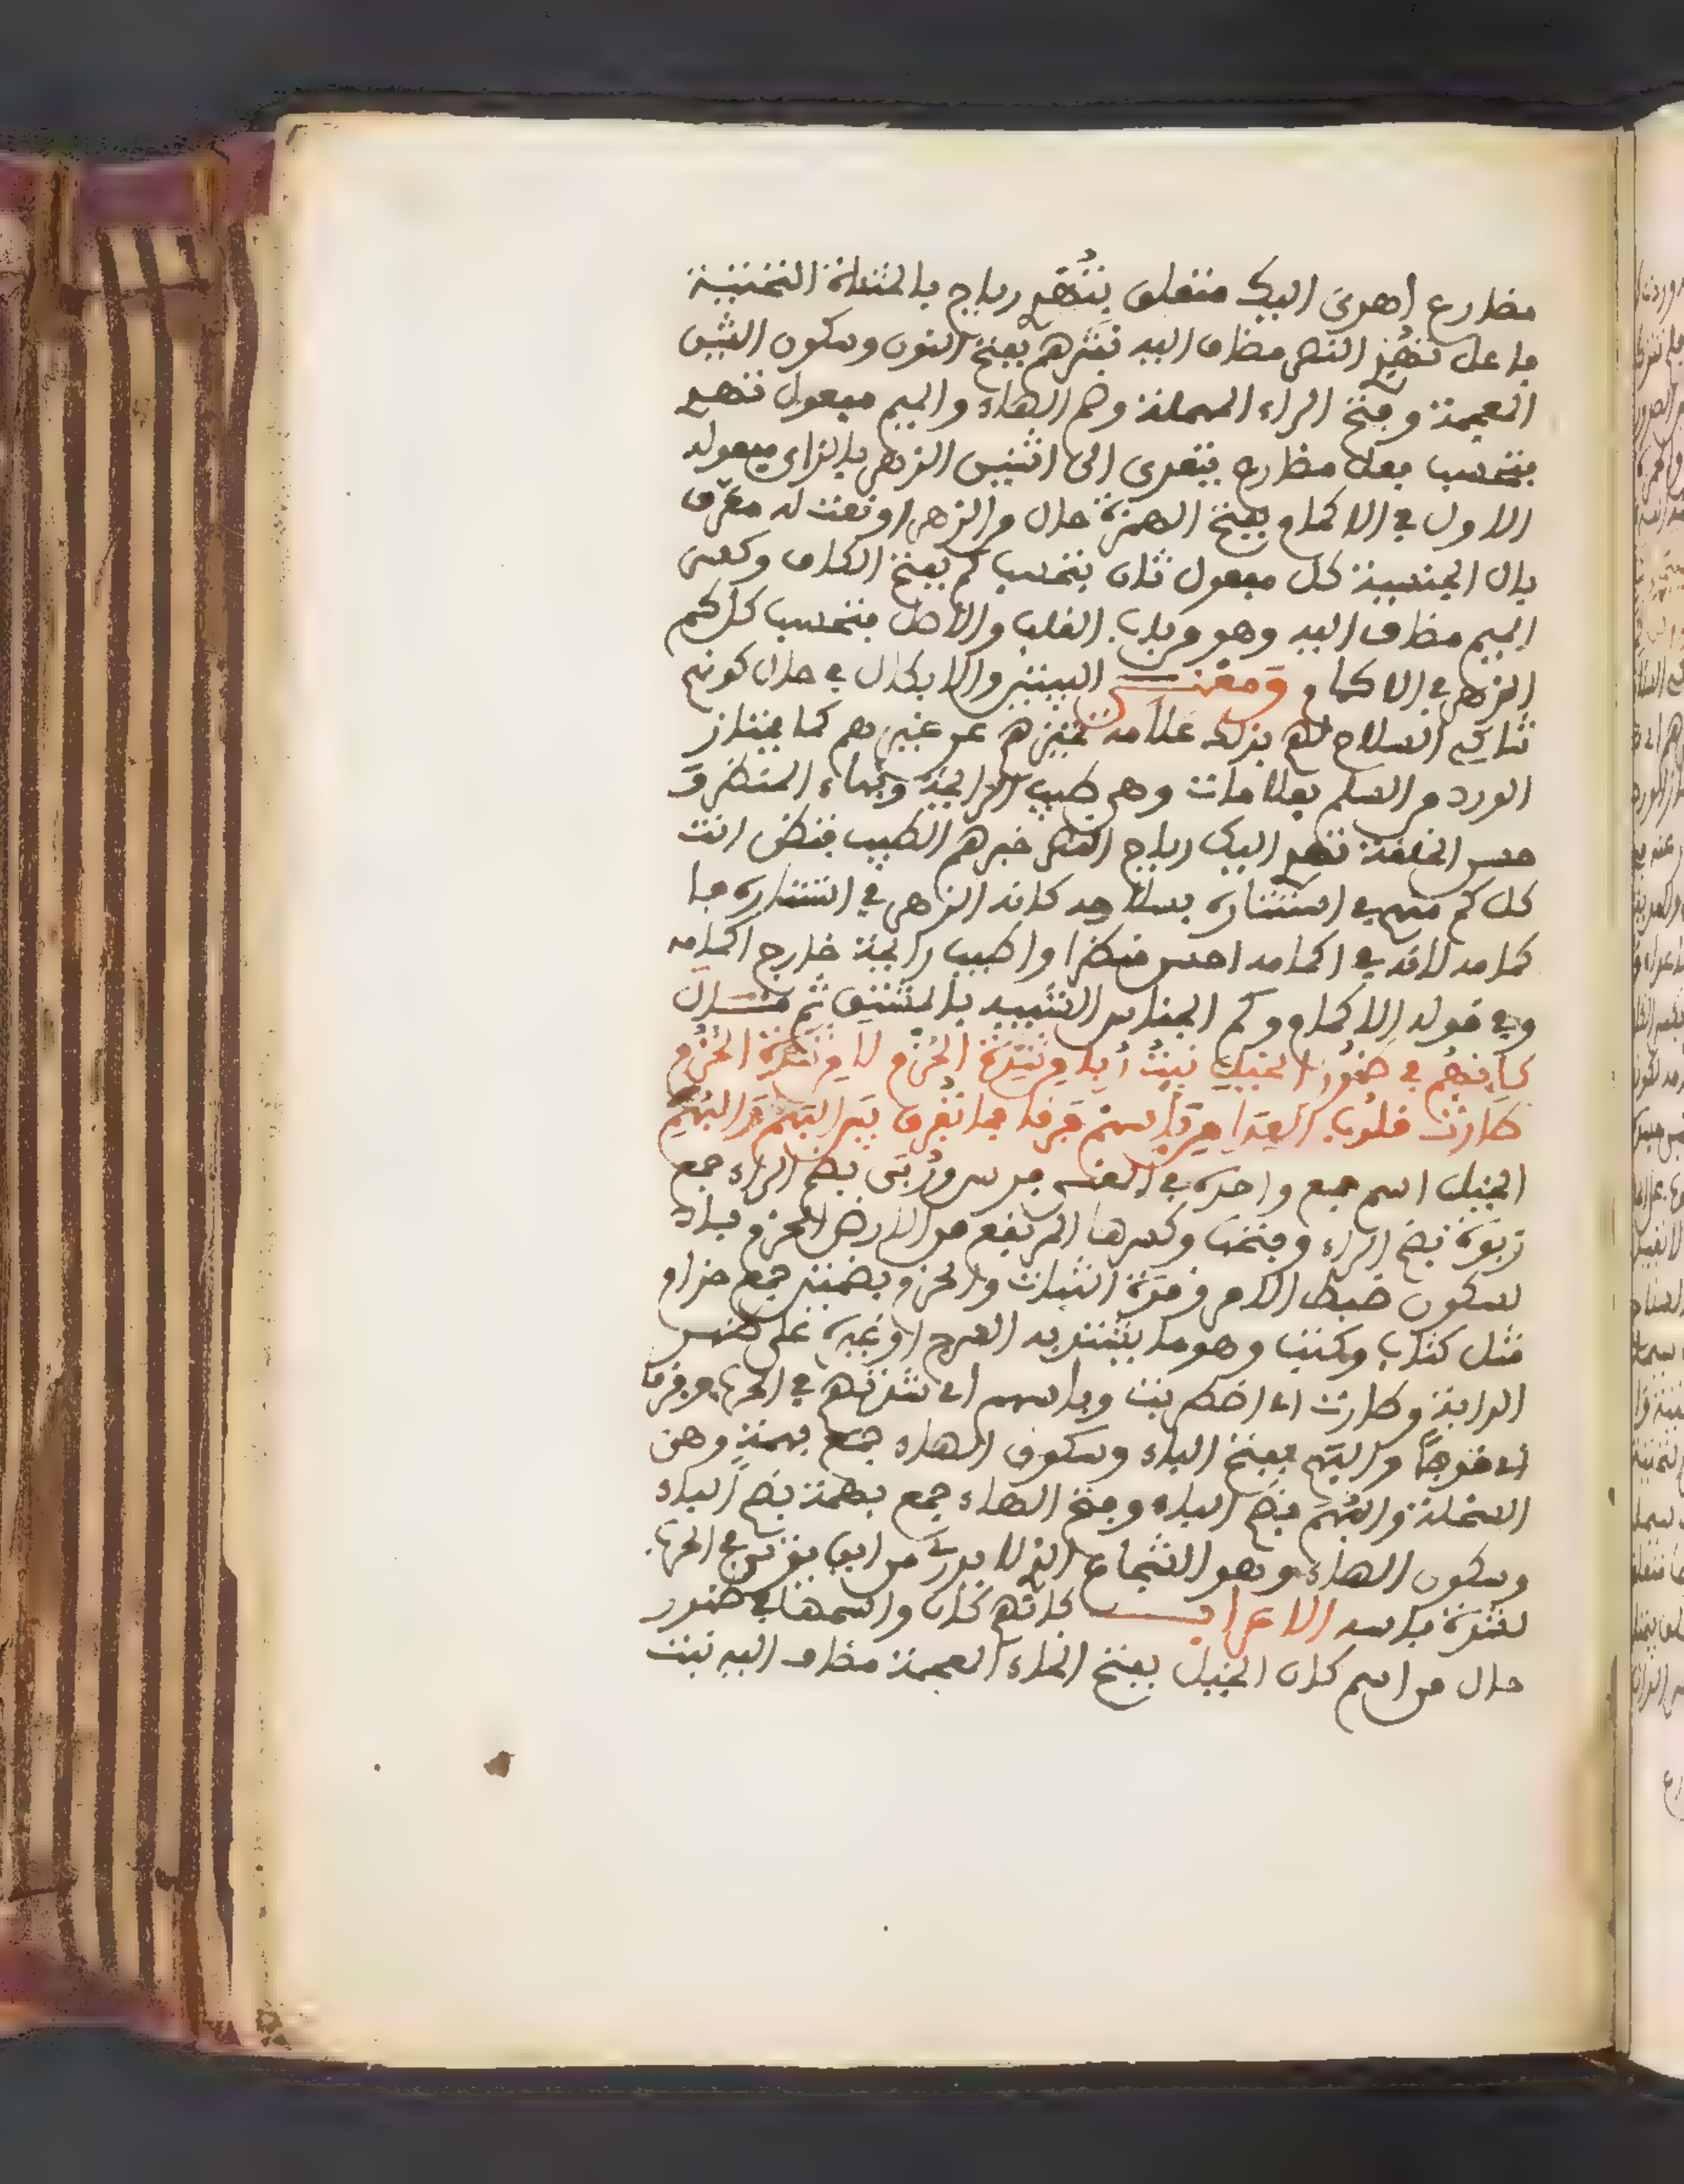 مضارع اهدى اليك متعلق بتُهْدِ رياح بالمثناة التحتية
فاعل تهدِ النصر مضاف اليه نَشْرهم بفتح النون وسكون الشين
المعجمة وفتح الراء المهملة وضم الهاء والميم مفعول تهدِ
فتحسب فعل مضارع يتعدى الى اثنين الزهر بالزاى مفعوله
الاول في الاكمام بفتح الهمزة حال من الزهر او نعت له معرف
بال الجنسية كل مفعول ثان بتحسب كم بفتح الكاف وكسر
الميم مضاف اليه وهو من باب القلب والاصل فتحسب كل كم
الزهر في الاكمام ومعنى البيتين والابطال في حال كونهم
شاكى السلاح لهم بذلك علامة تميزهم عن غيرهم كما يمتاز
الورد من السلم بعلامات وهى طيب الرائحة وبهاء المنظر و
حسن الخلقة تهدِ اليك رياح النصر خبرهم الطيب فتظن انت
كل كم منهم في استتاره بسلاحه كانه الزهر في استتاره با
كمامه لانه في اكمامه احسن منظرا واطيب رائحة خارج اكمامه
وفي قوله الاكمام وكم الجناس الشبيه بالمشتق ثم قال
كانهُم في ظهُور الخيلِ نبتُ رُبا من شِدّة الحَزْم لا من شدّة الحُزُم
طارت قلُوب العِدَا مِن بأسهم فَرَقا فما تُفرق بين البَهْم والبُهَم
الخيل اسم جمع واحده في المعنى فرس ورُبَى بضم الراء جمع
ربوة بضم الراء وفتحها وكسرها المرتفع من الارض الحزم بفتح
سكون ضبط الامر وقوة الثبات والحزم بضمتين جمع حزام
مثل كتاب وكتب وهو ما يشتد به السرج او غيره على ظهر
الدابة وطارت اى اضطربت وبأسهم اى شدتهم في الحرب وفرقا
اى خوفا والبَهْم بفتح الباء وسكون الهاء جمع بهمة وهى
السخلة والبُهَم بضم الباء وفتح الهاء جمع بهمة بضم الباء
وسكون الهاء وهو الشجاع الذى لا يدرى من اين يوتى في الحرب
لشدة بأسه الاعراب كانهم كان واسمها في ظهور
حال من اسم كان الخيل بفتح الخاء المعجمة مضاف اليه نبت